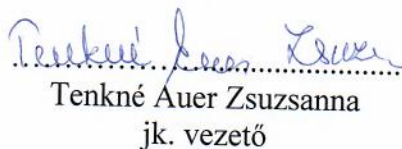 Tenkné Auer Zsuzsa
Tenkné Auer Zsuzsanna
jk. vezető